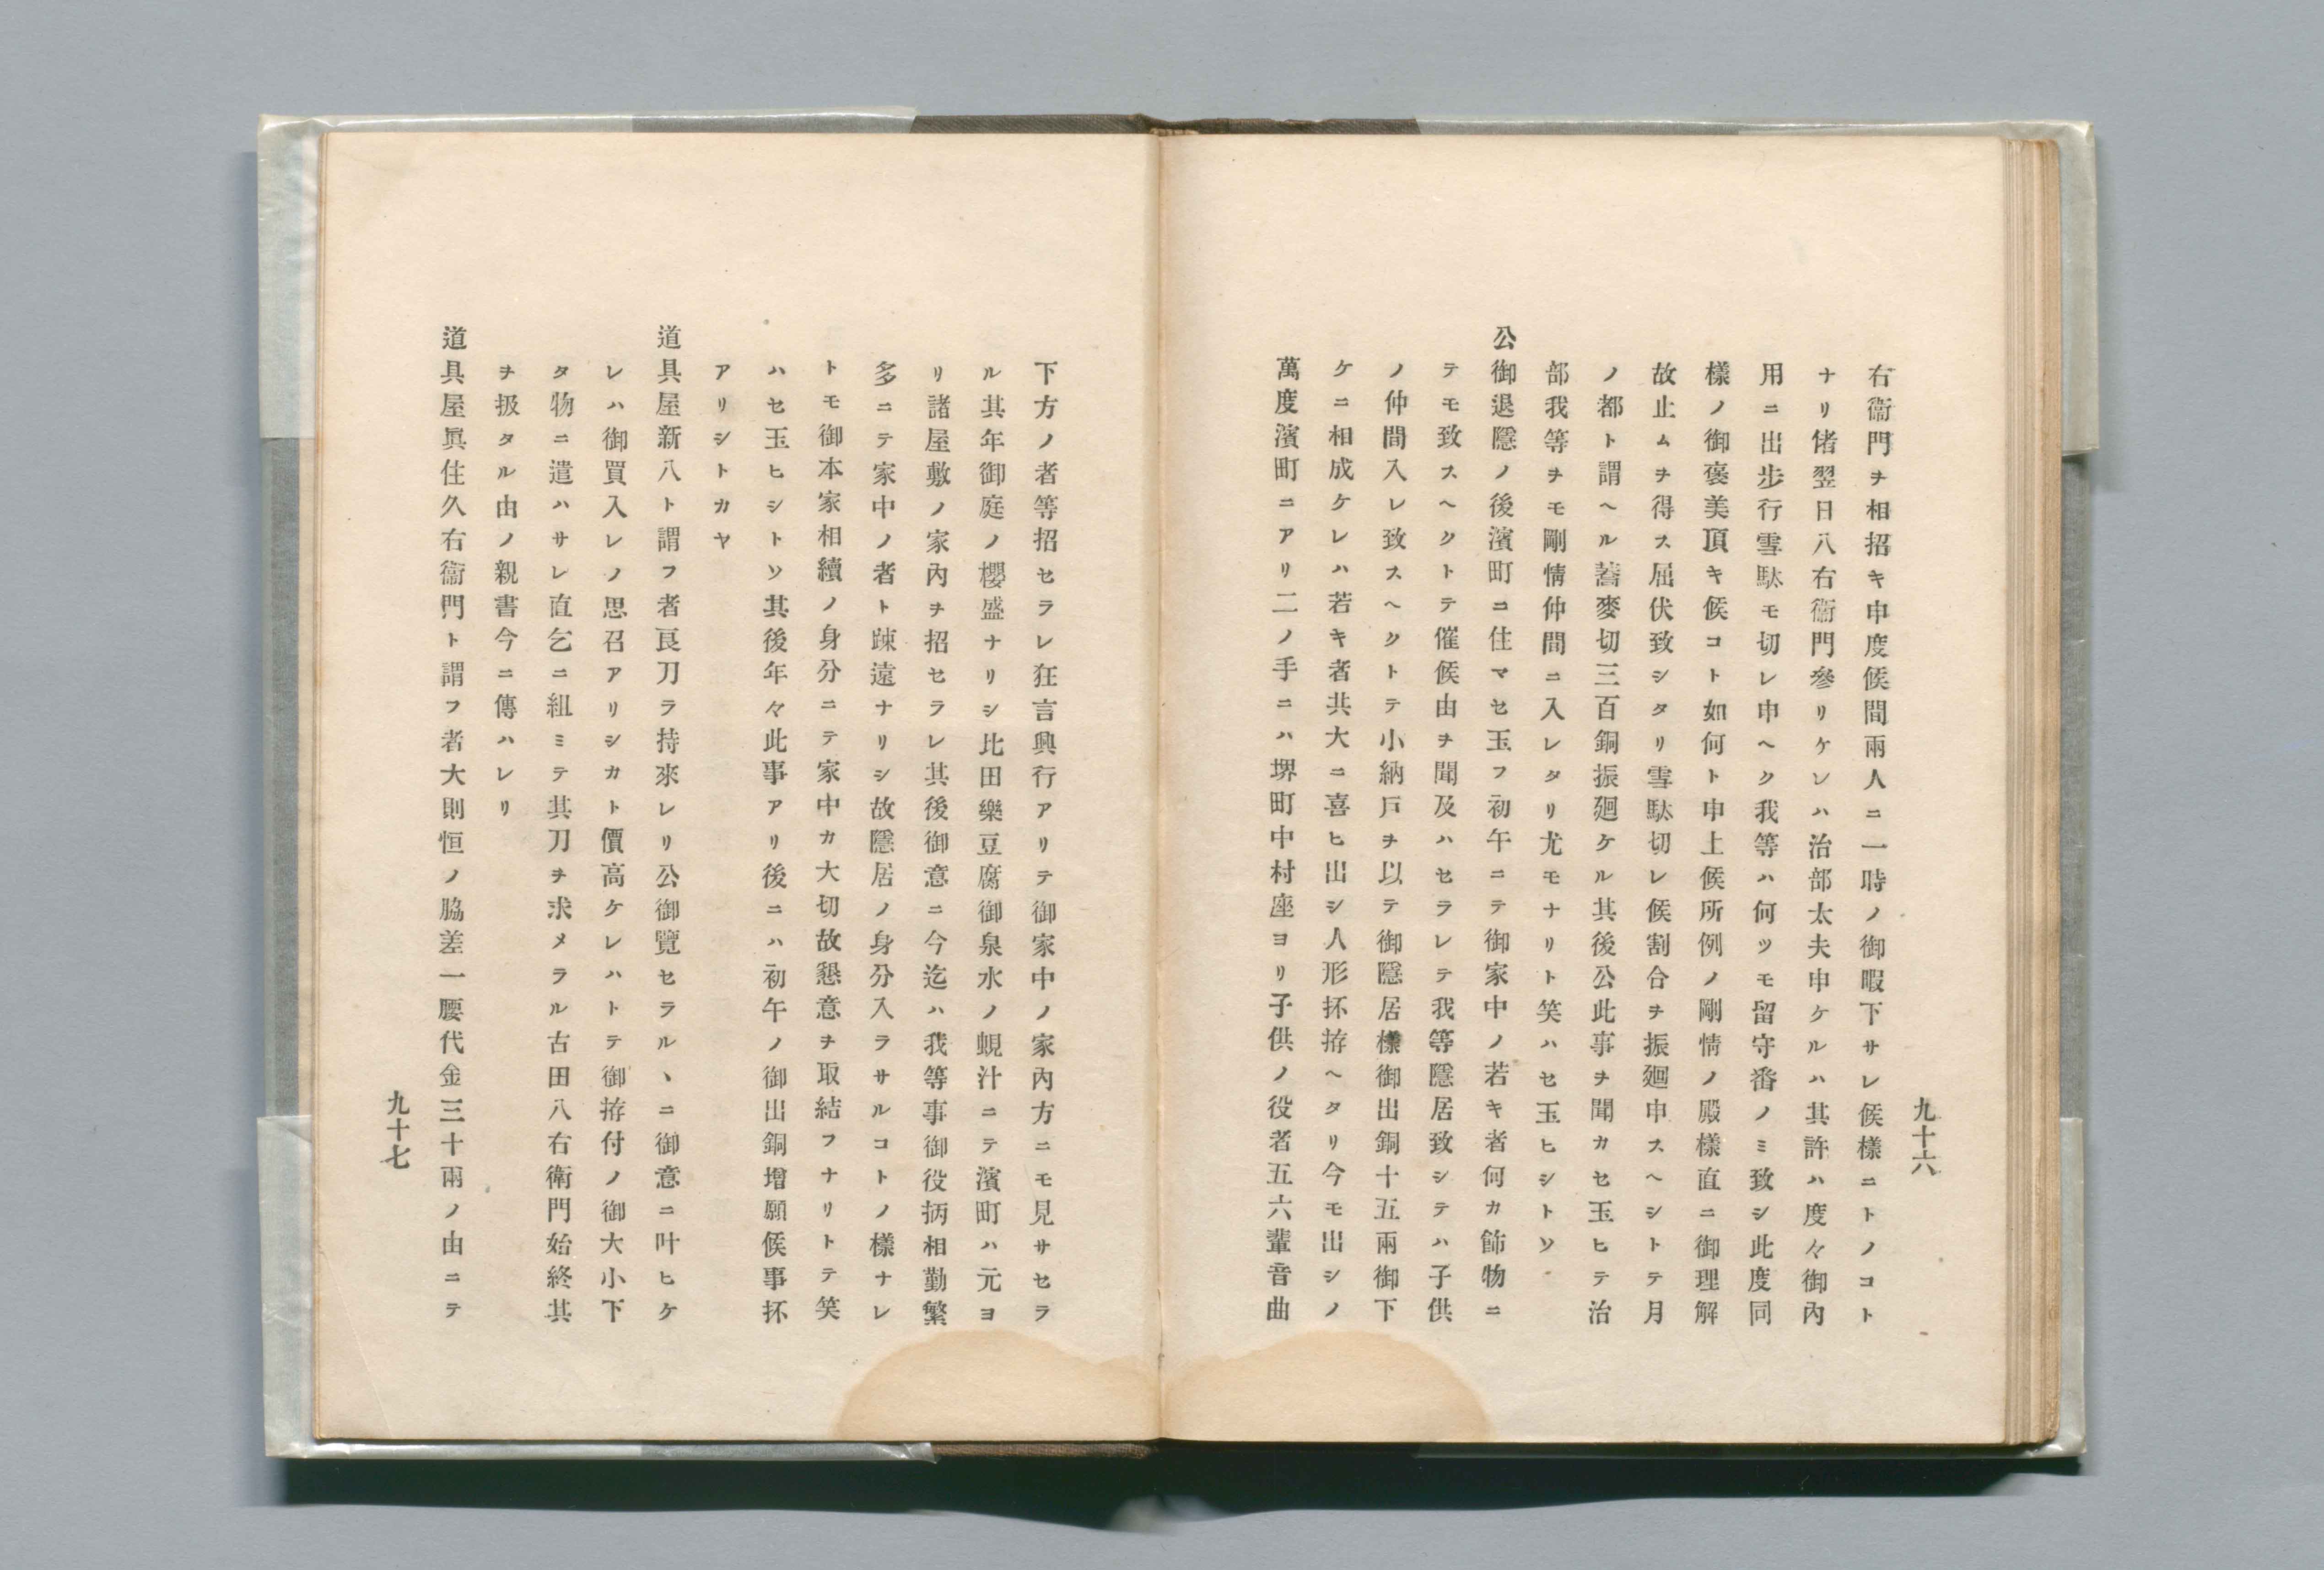 九十六
右衞門ヲ相招キ申度候間兩人ニ一時ノ御暇下サレ候樣ニトノコト
ナリ偖翌日八右衞門參リケレハ治部太夫申ケルハ其許ハ度々御內
用ニ出步行雪駄モ切レ申ヘク我等ハ何ツモ留守番ノミ致シ此度同
樣ノ御褒美頂キ候コト如何ト申上候所例ノ剛情ノ殿樣直ニ御理解
故止ムヲ得ス屈伏致シタリ雪駄切レ候割合ヲ振廻申スヘシトテ月
ノ都ト謂ヘル蕎麥切三百銅振廻ケル其後公此事ヲ聞カセ玉ヒテ治
部我等ヲモ剛情仲間ニ入レタリ尤モナリト笑ハセ玉ヒシトソ
公御退隱ノ後濱町ニ住マセ玉フ初午ニテ御家中ノ若キ者何カ飾物ニ
テモ致スヘクトテ催候由ヲ聞及ハセラレテ我等隱居致シテハ子供
ノ仲間入レ致スヘクトテ小納戸ヲ以テ御隱居樣御出銅十五兩御下
ケニ相成ケレハ若キ者共大ニ喜ヒ出シ人形抔拵ヘタリ今モ出シノ
萬度濱町ニアリ二ノ手ニハ堺町中村座ヨリ子供ノ役者五六輩音曲
下方ノ者等招セラレ狂言興行アリテ御家中ノ家內方ニモ見サセラ
ル其年御庭ノ櫻盛ナリシ比田樂豆腐御泉水ノ蜆汁ニテ濱町ハ元ヨ
リ諸屋敷ノ家內ヲ招セラレ其後御意ニ今迄ハ我等事御役柄相勤繁
多ニテ家中ノ者ト踈遠ナリシ故隱居ノ身分入ラサルコトノ樣ナレ
トモ御本家相續ノ身分ニテ家中カ大切故懇意ヲ取結フナリトテ笑
ハセ玉ヒシトソ其後年々此事アリ後ニハ初午ノ御出銅增願候事抔
アリシトカヤ
道具屋新八ト謂フ者良刀ヲ持來レリ公御覽セラルヽニ御意ニ叶ヒケ
レハ御買入レノ思召アリシカト價高ケレハトテ御拵付ノ御大小下
タ物ニ遣ハサレ直乞ニ組ミテ其刀ヲ求メラル古田八右衛門始終其
ヲ扱タル由ノ親書今ニ傳ハレリ
道具屋眞住久右衞門ト謂フ者大則恒ノ脇差一腰代金三十兩ノ由ニテ
九十七